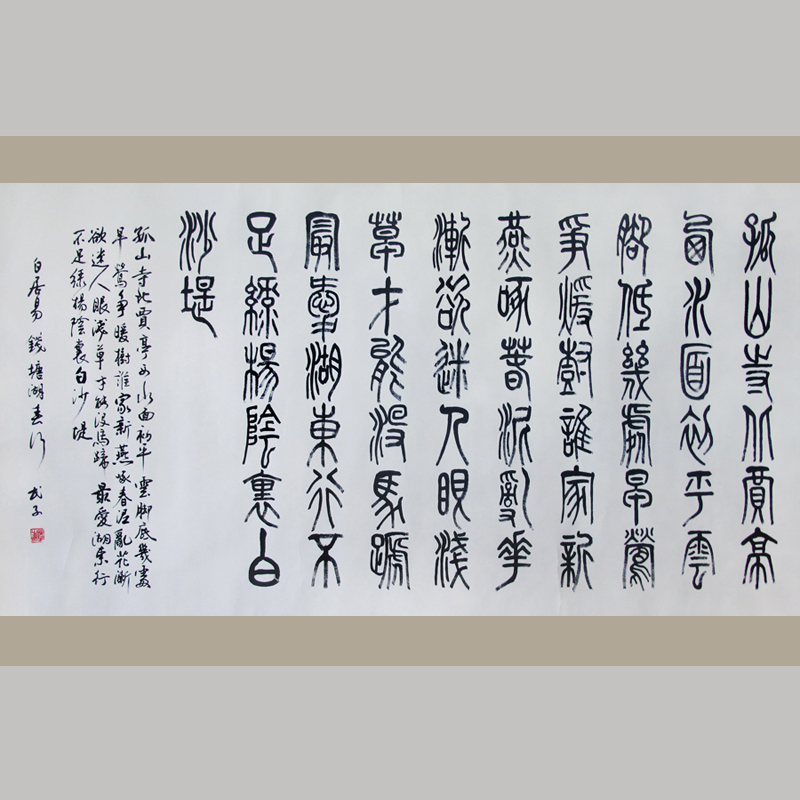 孤山寺北賈亭
西水面初平雲
腳低幾處早鶯
爭煖樹誰家新
燕啄春泥亂花
漸欲迷人眼淺
草才能沒馬蹄
最愛湖東行不
足綠楊陰裏白
沙堤
孤山寺北賈亭西水面初平雲脚底幾處
早鶯爭暖樹誰家新燕啄春泥亂花漸
欲迷人眼淺草才能沒馬蹄最愛湖東行
不足綠楊陰裏白沙堤
白居易錢塘湖春行